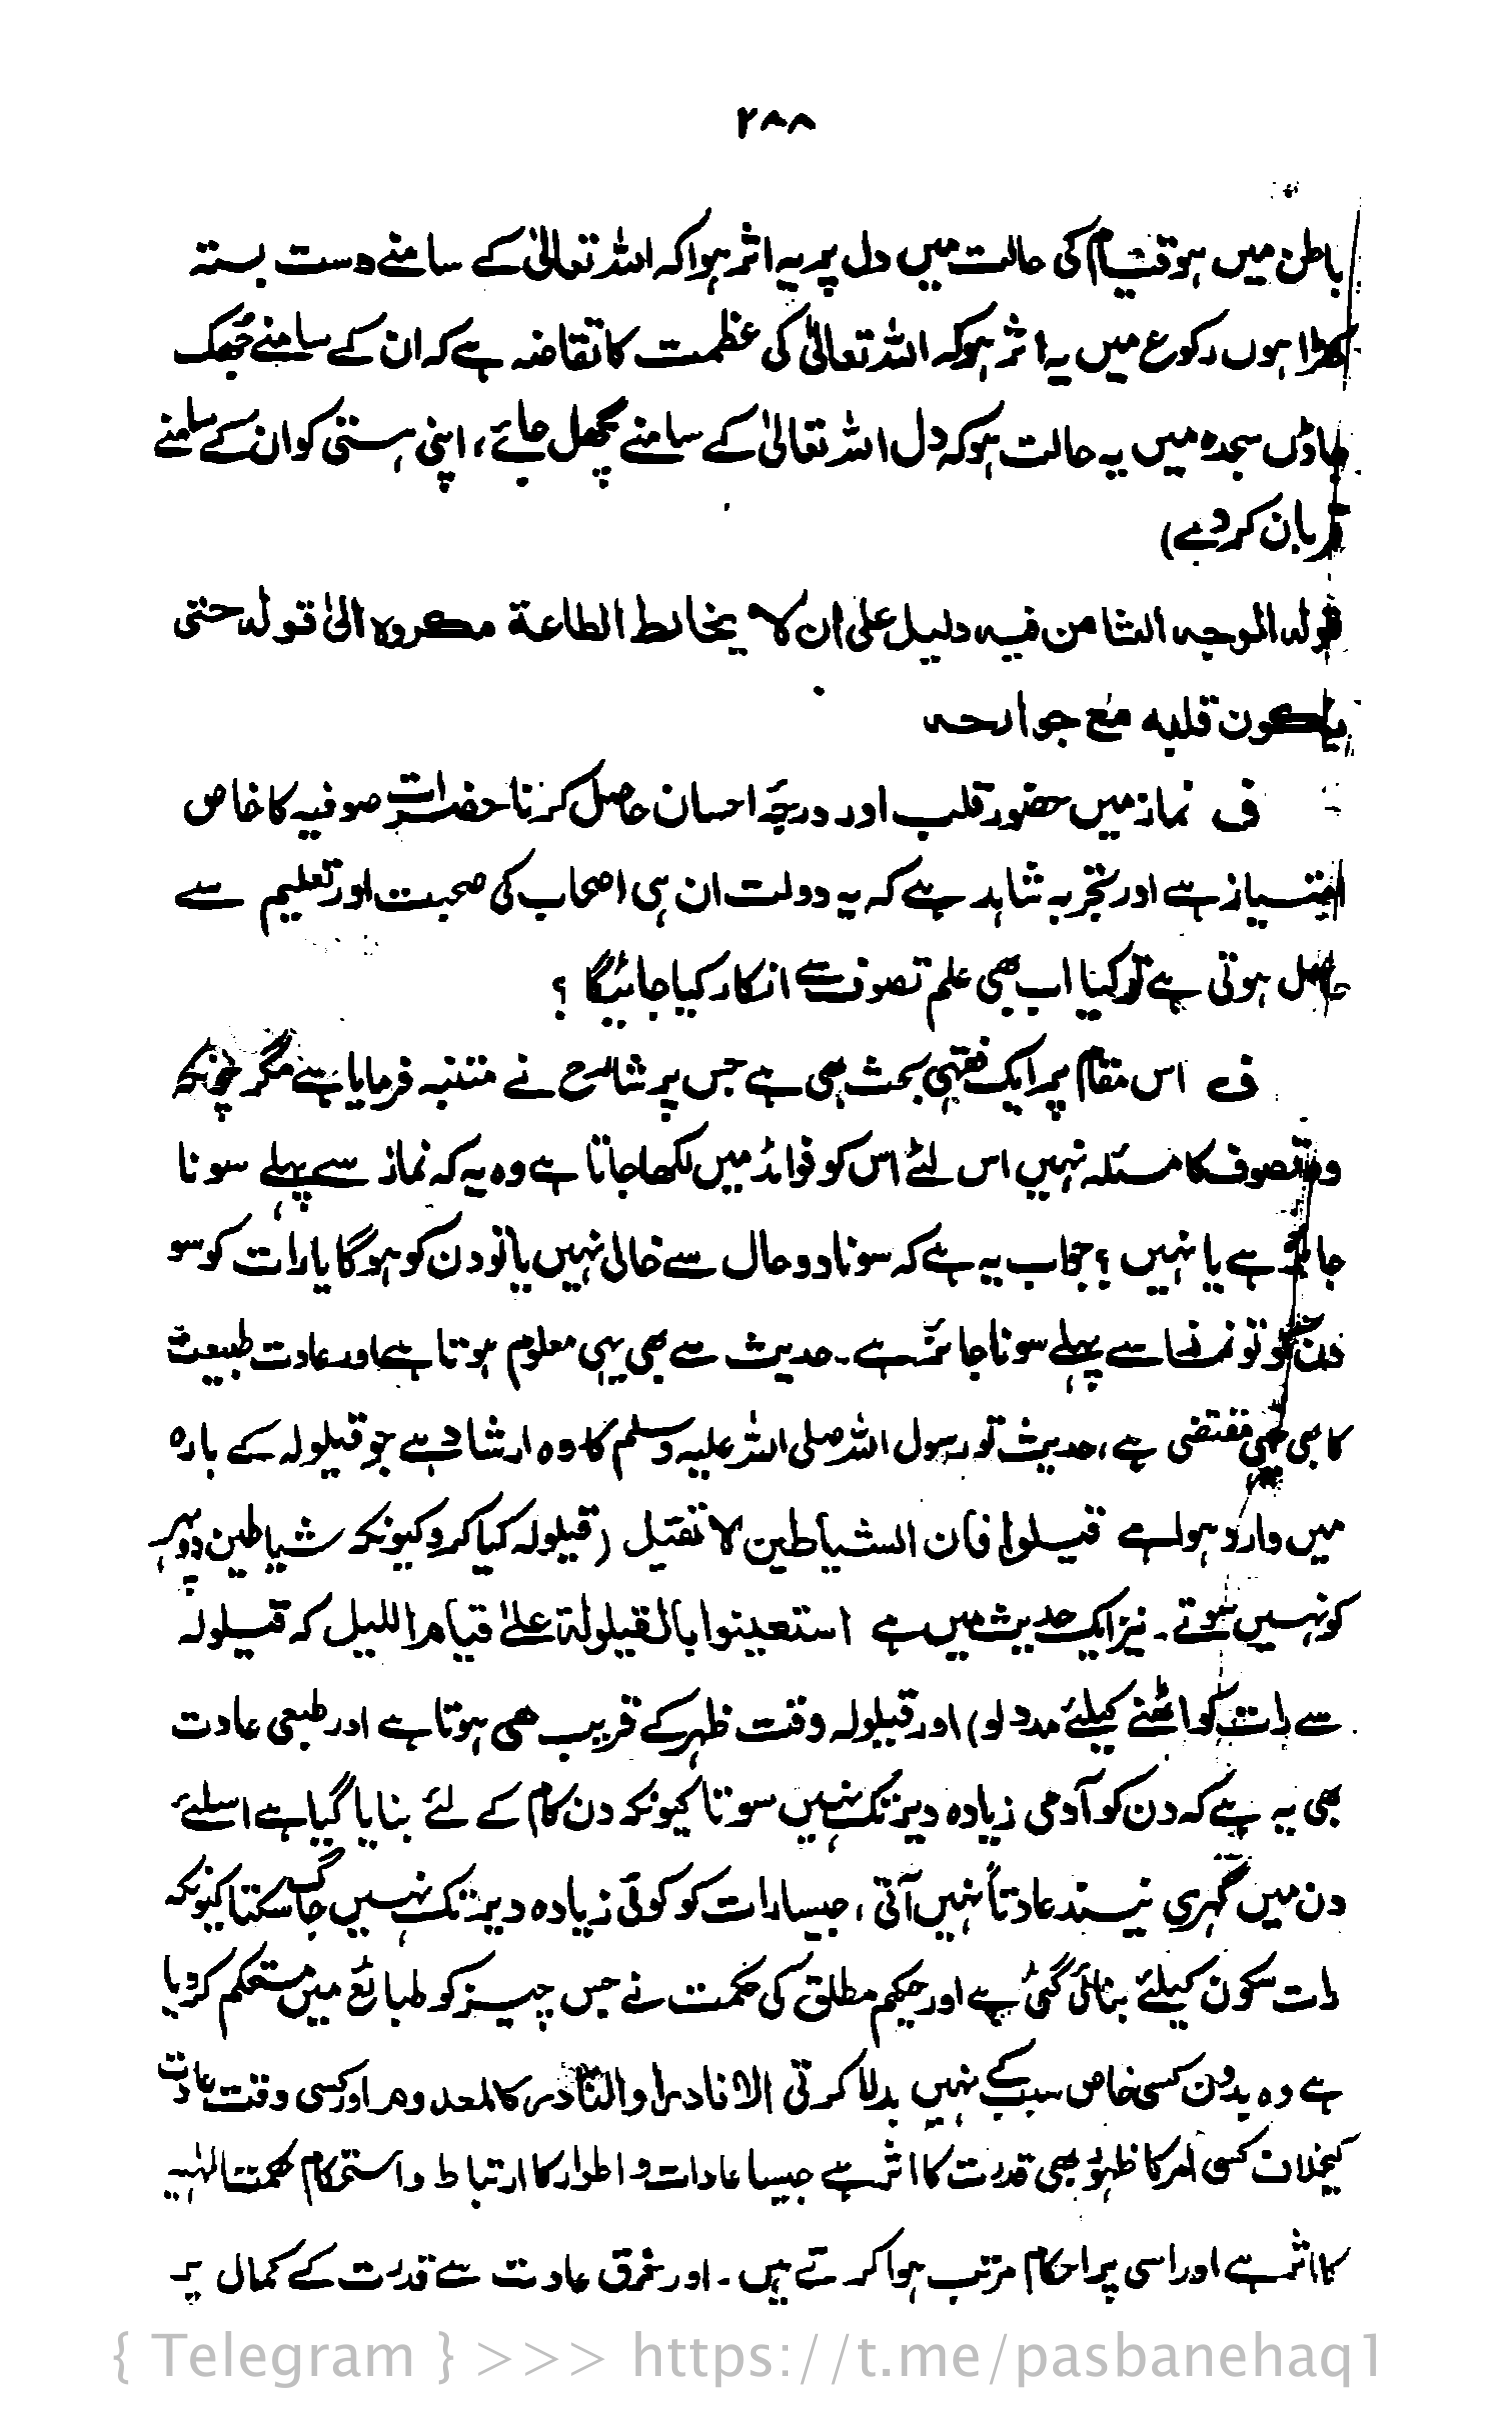 ۲۸۸
باطن میں ہو قیام کی حالت میں دل پر یہ اثر ہوا کہ اللہ تعالیٰ کے سامنے دست بستہ
کھڑا ہوں رکوع میں یہ اثر ہو کہ اللہ تعالیٰ کی عظمت کا تقاضہ ہے کہ ان کے سامنے جھک
جاؤں سجدہ میں یہ حالت ہو کہ دل اللہ تعالیٰ کے سامنے پگھل جائے، اپنی ہستی کو ان کے سامنے
قربان کر دے)
قولہ الوجہ الثامن فیہ دلیل علی ان لا یخالط الطاعة مکروہ الیٰ قولہ حتی
یکون قلبه مع جوارحہ
ف نماز میں حضور قلب اور درجۂ احسان حاصل کرنا حضرات صوفیہ کا خاص
امتیاز ہے اور تجربہ شاہد ہے کہ یہ دولت ان ہی اصحاب کی صحبت اور تعلیم سے
حاصل ہوتی ہے تو کیا اب بھی علم تصوف سے انکار کیا جائیگا ؟
ف اس مقام پر ایک فقہی بحث بھی ہے جس پر شارح نے متنبہ فرمایا ہے مگر چونکہ
وہ تصوف کا مسئلہ نہیں اس لئے اس کو فوائد میں لکھا جاتا ہے وہ یہ کہ نماز سے پہلے سونا
جائز ہے یا نہیں ؟ جواب یہ ہے کہ سونا دو حال سے خالی نہیں یا تو دن کو ہوگا یا رات کو سو
دن کو تو نماز سے پہلے سونا جائز ہے۔ حدیث سے بھی یہی معلوم ہوتا ہے اور عادت طبیعت
کا بھی یہی مقتضی ہے، حدیث تو رسول اللہ صلی اللہ علیہ وسلم کا وہ ارشاد ہے جو قیلولہ کے بارہ
میں وارد ہوا ہے قیلوا فان الشیاطین لا تقیل (قیلولہ کیا کرو کیونکہ شیاطین دوپہر
کو نہیں سوتے۔ نیز ایک حدیث میں ہے استعینوا بالقیلولة علیٰ قیام اللیل کہ قیلولہ
سے رات کو اٹھنے کیلئے مدد لو) اور قیلولہ وقت ظہر کے قریب ھی ہوتا ہے اور طبعی عادت
بھی یہ ہے کہ دن کو آدمی زیادہ دیر تک نہیں سوتا کیونکہ دن کام کے لئے بنایا گیا ہے اسلئے
دن میں گہری نیند عادتاً نہیں آتی، جیسا رات کو کوئی زیادہ دیر تک نہیں جاگ سکتا کیونکہ
رات سکون کیلئے بنائی گئی ہے اور حکیم مطلق کی حکمت نے جس چیز کو طبائع میں مستحکم کر دیا
ہے وہ بدون کسی خاص سبب کے نہیں بدلا کرتی الا نادرا والنادر کالمعدوم اور کسی وقت عادت
کیخلاف کسی امر کا ظہور بھی قدرت کا اثر ہے جیسا عادات و اطوار کا ارتباط و استحکام حکمت الٰہیہ
کا اثر ہے اور اسی پر احکام مرتب ہوا کرتے ہیں۔ اور خرق عادت سے قدرت کے کمال پر
{ Telegram } >>> https://t.me/pasbanehaq1